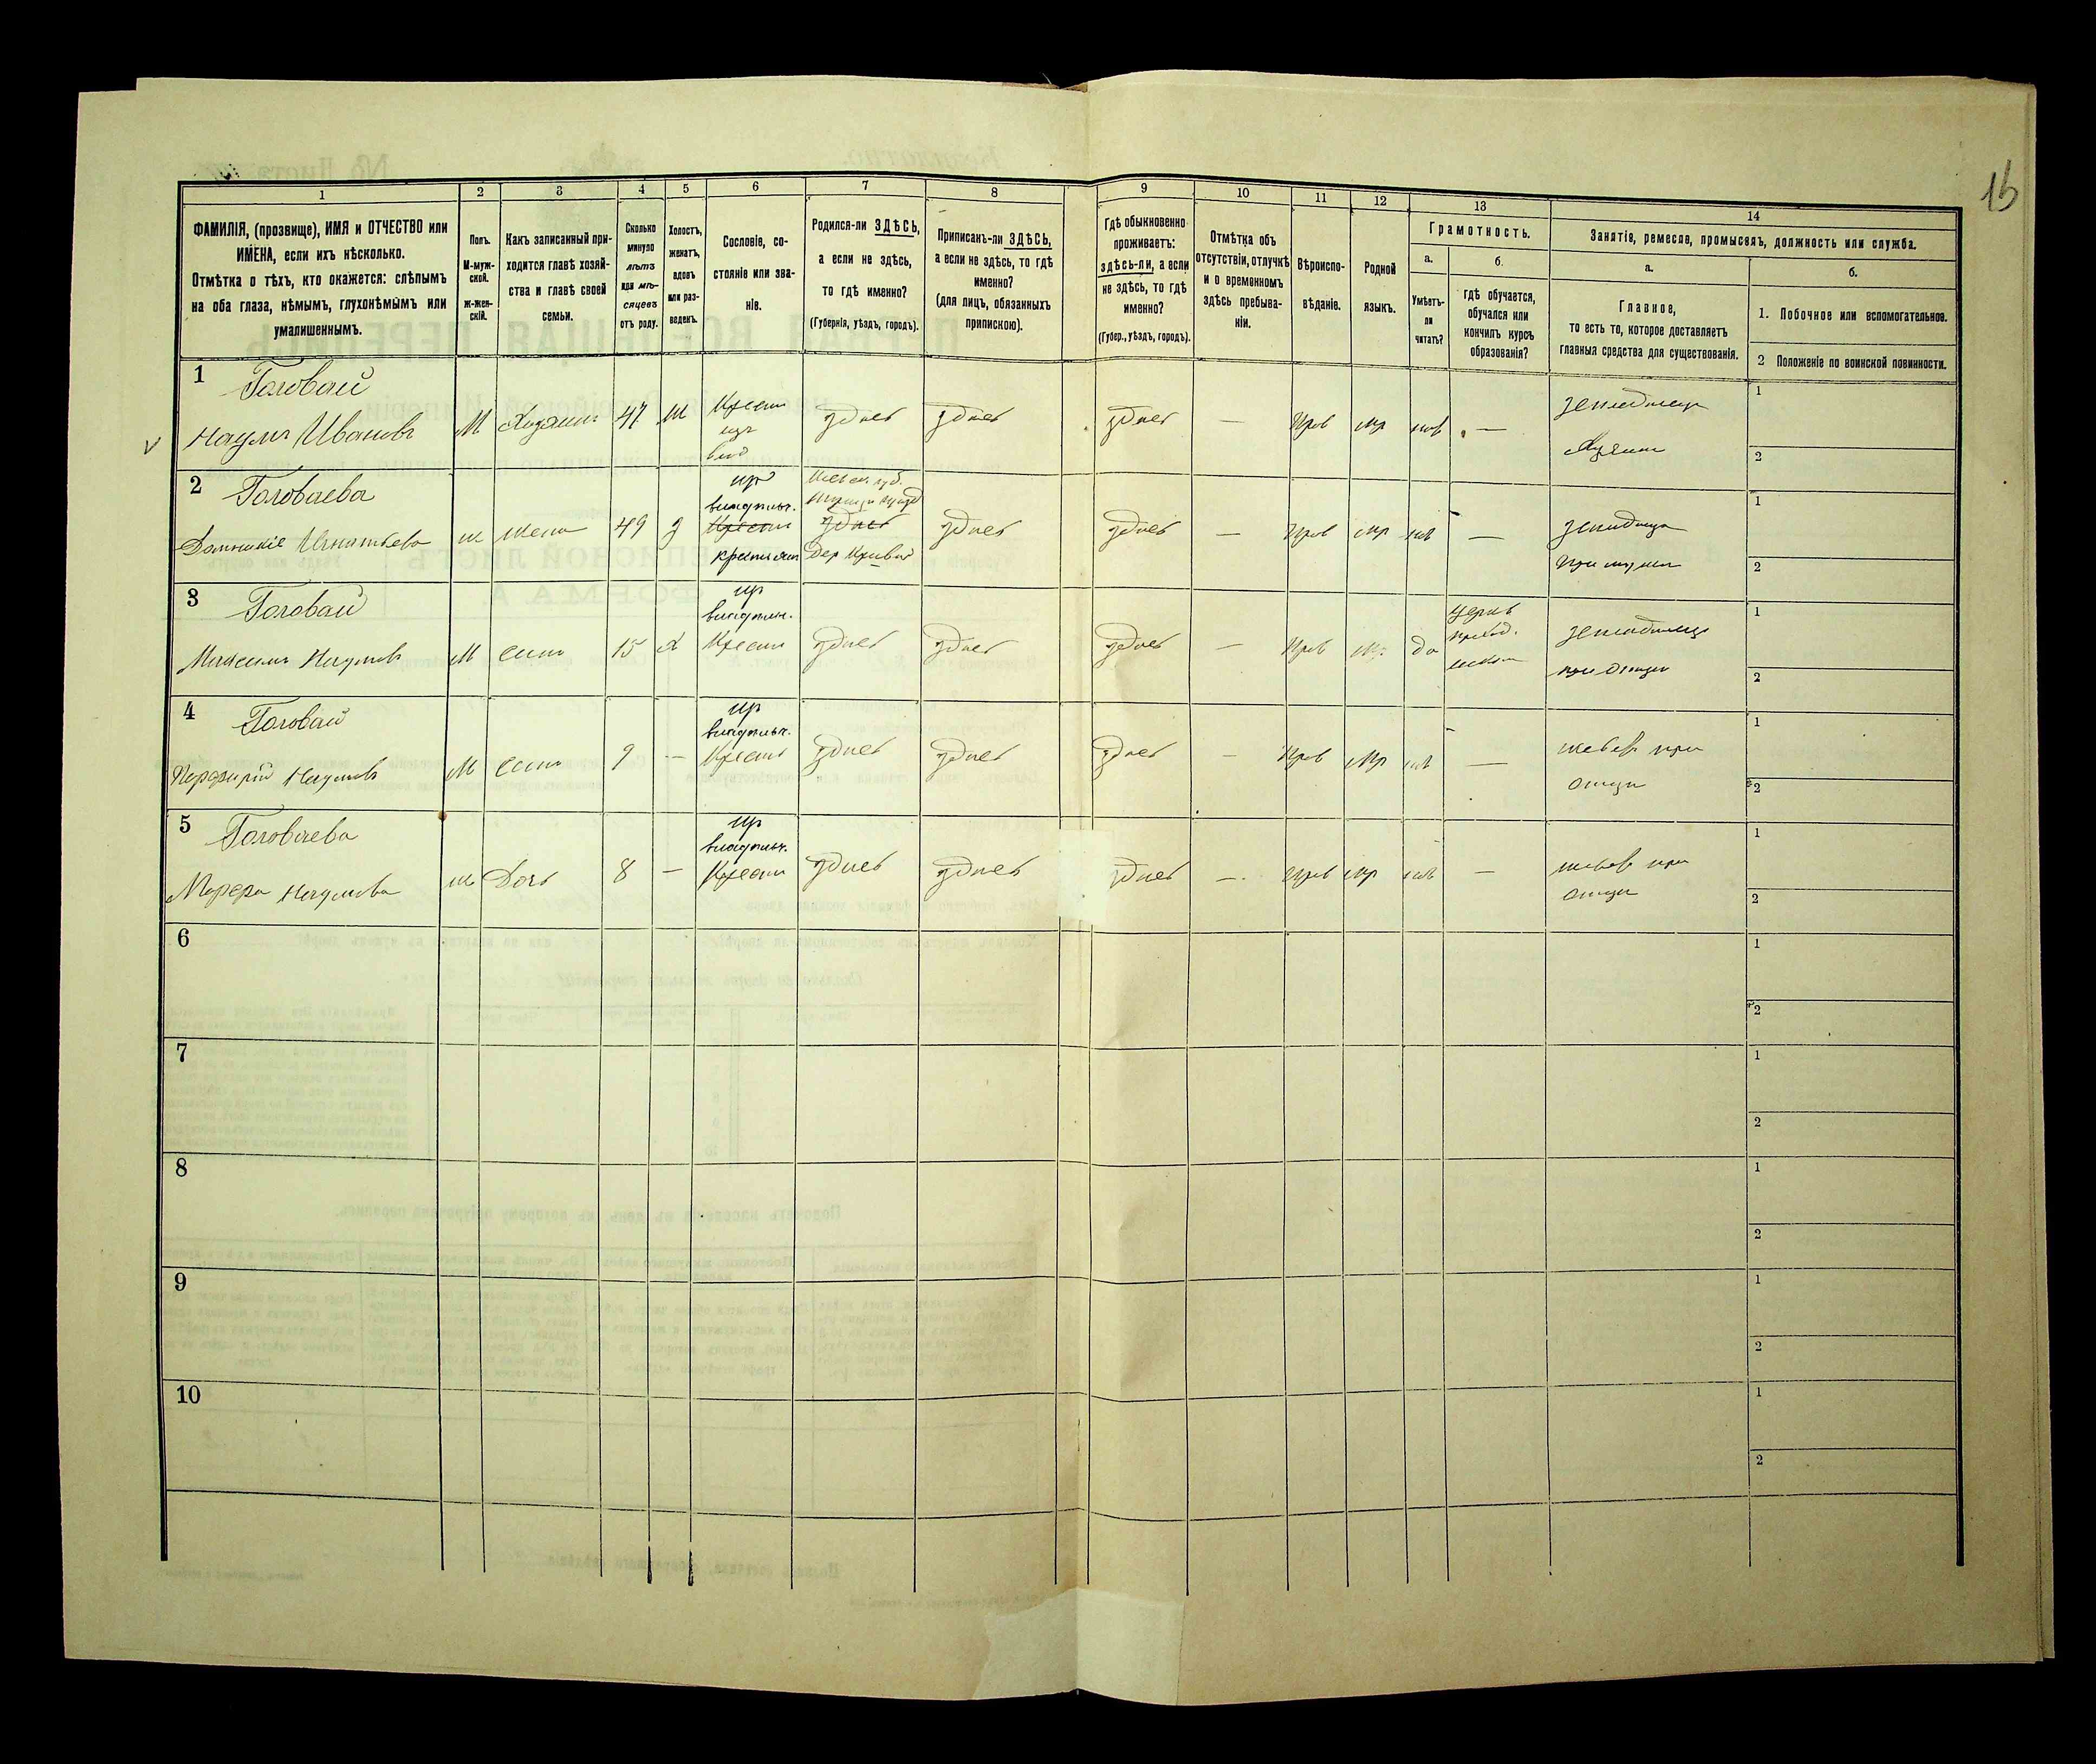 15
1
2
3
4
5
6
7
8
9
10
11
12
13
14
ФАМИЛІЯ, (прозвище), ИМЯ и ОТЧЕСТВО или
ИМЕНА, если ихъ нѣсколько.
Отмѣтка о тѣхъ, кто окажется: слѣпымъ
на оба глаза, нѣмымъ, глухонѣмымъ или
умалишеннымъ.
Полъ.
М-муж-
ской.
ж-жен-
скій.
Какъ записанный при-
ходится главѣ хозяй-
ства и главѣ своей
семьи.
Сколько
минуло
лѣтъ
или мѣ-
сяцевъ
отъ роду.
Холостъ,
женатъ,
вдовъ
или раз-
веденъ.
Сословіе, со-
стояніе или зва-
ніе.
Родился-ли ЗДѢСЬ,
а если не здѣсь,
то гдѣ именно?
(Губернія, уѣздъ, городъ).
Приписанъ-ли ЗДѢСЬ,
а если не здѣсь, то гдѣ
именно?
(для лицъ, обязанныхъ
припискою).
Гдѣ обыкновенно
проживаетъ:
здѣсь-ли, а если
не здѣсь, то гдѣ
именно?
(Губер., уѣздъ, городъ).
Отмѣтка объ
отсутствіи, отлучкѣ
и о временномъ
здѣсь пребыва-
ніи.
Вѣроиспо-
вѣданіе.
Родной
языкъ.
Грамотность.
а.
Умѣетъ-
ли
читать?
б.
гдѣ обучается,
обучался или
кончилъ курсъ
образованія?
Занятіе, ремесло, промыселъ, должность или служба.
а.
Главное,
то есть то, которое доставляетъ
главныя средства для существованія.
б.
1. Побочное или вспомогательное.
2 Положеніе по воинской повинности.
1 Головай
Наумъ Ивановъ
М Хозяинъ 47 ж Крест
из
влад
здѣсь здѣсь здѣсь — Прав мр нѣт —
земледѣлец
Хозяин
1
2
2 Головаева
Игнатьева
ж жена 49 з
из
владѣльч.
крестьян
здѣсь
здѣсь здѣсь — Прав мр нѣт —
при мужѣ
1
2
3 Головай
Максимъ Наумовъ
М сынъ 15 х
из
владѣльч.
Крест
здѣсь здѣсь здѣсь — Прав мр да
церкв
приход.
школ
земледѣлец
при отцѣ
1
2
4 Головай
Порфирій Наумовъ
М сынъ 9 —
из
владѣльч.
Крест
здѣсь здѣсь здѣсь — Прав мр нѣт —
живет при
отцѣ
1
2
5 Головаева
Наумова
ж Дочь 8 —
из
владѣльч.
Крест
здѣсь здѣсь здѣсь — Прав мр нѣт —
живет при
отцѣ
1
2
6
1
2
7
1
2
8
1
2
9
1
2
10
1
2